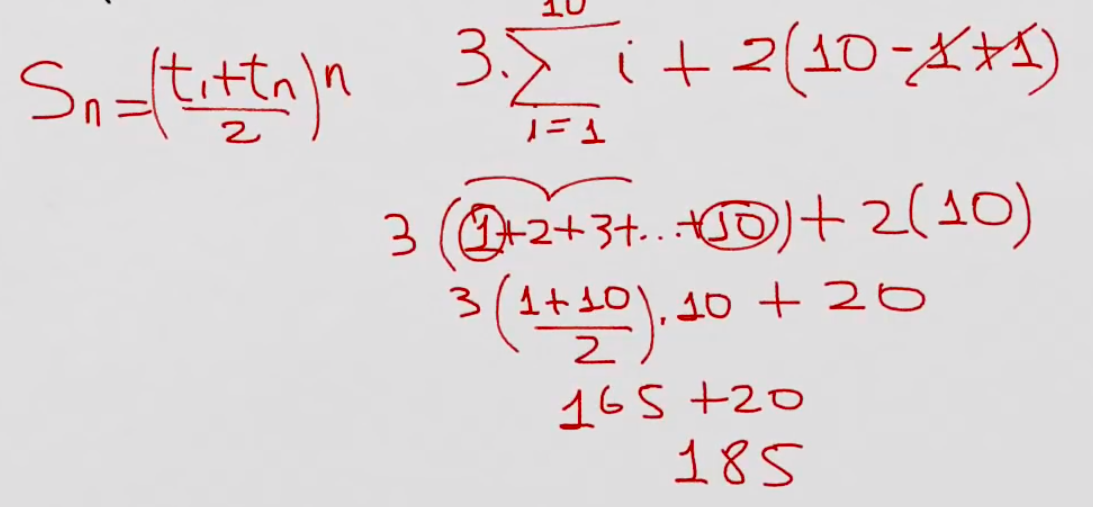 10
S_n = (t_1 + t_n / 2) n
3 · ∑ i + 2(10 - 1 + 1)
i = 1
3 (1 + 2 + 3 + ... + 10) + 2(10)
3 (1 + 10 / 2) . 10 + 20
165 + 20
185